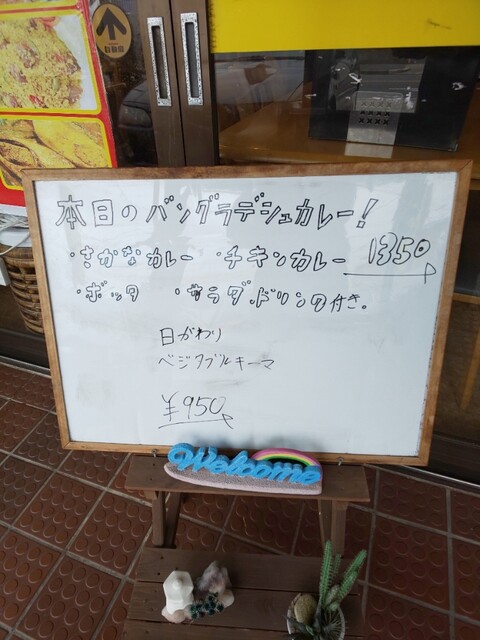 自動扉
本日のバングラデシュカレー!
・さかなカレー ・チキンカレー 1350
・ボッタ ・サラダ.ドリンク付き.
日がわり
ベジタブルキーマ
¥950
Welcome